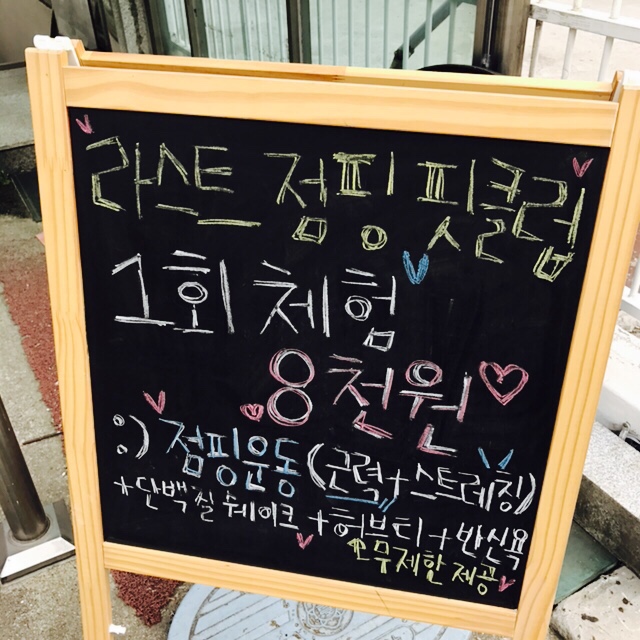 라스트 점핑 핏클럽
1회 체험
8천원
:) 점핑운동 (근력 + 스트레칭)
+ 단백질 쉐이크 + 허브티 + 반신욕
↑무제한 제공